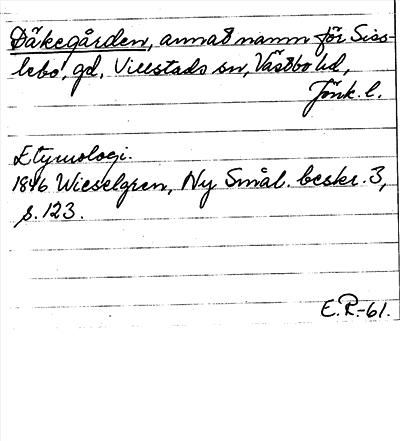 Däkegården, annat namn för Siss-
lebo, gd, Villstads sn, Västbo hd,
Jönk. l.
Etymologi.
1846 Wieselgren, Ny Smål. beskr. 3,
s. 123.
E.R.-61.